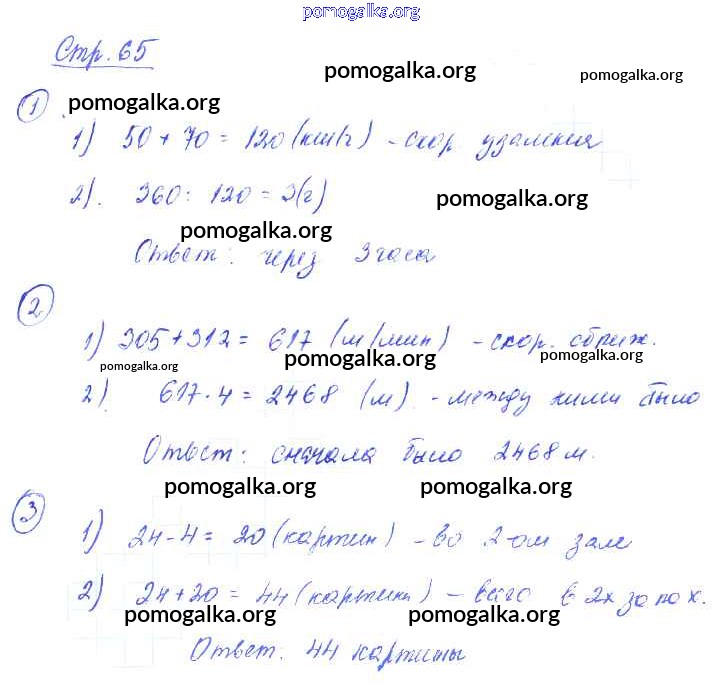 pomogalka.org
Стр. 65
pomogalka.org pomogalka.org
1 pomogalka.org
1) 50 + 70 = 120 (км/ч) - скор. удаления
2). 360 : 120 = 3(ч)
pomogalka.org
pomogalka.org
Ответ: через 3 часа
2
1) 305 + 312 = 617 (м/мин) - скор. сближ.
pomogalka.org pomogalka.org pomogalka.org
2) 617 · 4 = 2468 (м) - между ними было
Ответ: сначала было 2468 м.
pomogalka.org pomogalka.org
3
1) 24 - 4 = 20 (картин) - во 2-ом зале
2) 24 + 20 = 44 (картины) - всего в 2х залах.
pomogalka.org pomogalka.org
Ответ: 44 картины